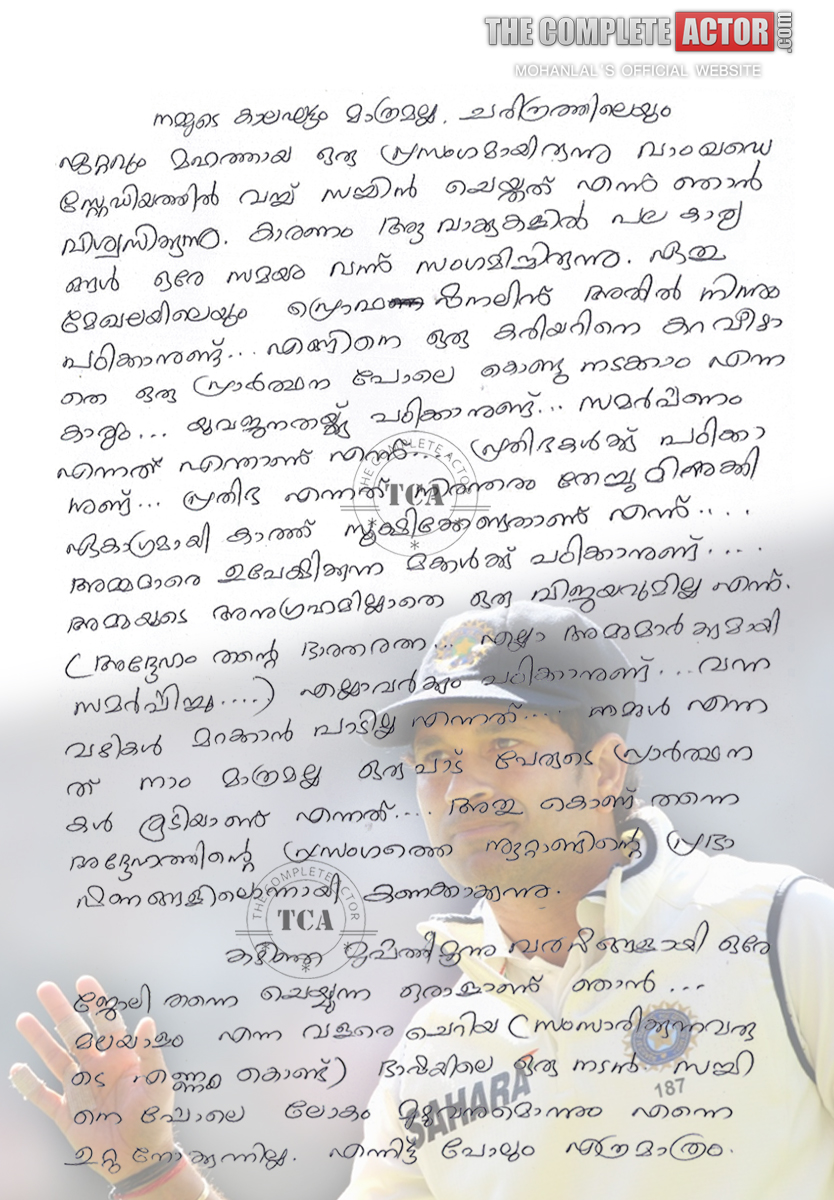 THE COMPLETE ACTOR.com
MOHANLAL'S OFFICIAL WEBSITE
നമ്മുടെ കാലഘട്ടം മാത്രമല്ല. ചരിത്രത്തിലെയും
ഏറ്റവും മഹത്തായ ഒരു പ്രസംഗമായിരുന്നു വാംഖഡെ
സ്റ്റേഡിയത്തിൽ വച്ച് സച്ചിൻ ചെയ്തത് എന്ന് ഞാൻ
വിശ്വസിക്കുന്നു. കാരണം ആ വാക്കുകളിൽ പല കാര്യ
ങ്ങൾ ഒരേ സമയം വന്ന് സംഗമിച്ചിരുന്നു. ഏതു
മേഖലയിലെയും പ്രൊഫഷനലിന് അതിൽ നിന്നും
പഠിക്കാനുണ്ട്... എങ്ങിനെ ഒരു കരിയറിനെ കറ വീഴാ
തെ ഒരു പ്രാർത്ഥന പോലെ കൊണ്ടു നടക്കാം എന്ന
കാര്യം... യുവജനതയ്ക്കു പഠിക്കാനുണ്ട്... സമർപ്പണം
എന്നത് എന്താണ് എന്ന്.... പ്രതിഭകൾക്ക് പഠിക്കാ
നുണ്ട്... പ്രതിഭ എന്നത് നിരന്തരം തേച്ചു മിനുക്കി
ഏകാഗ്രമായി കാത്ത് സൂക്ഷിക്കേണ്ടതാണ് എന്ന്....
അമ്മമാരെ ഉപേക്ഷിക്കുന്ന മക്കൾക്ക് പഠിക്കാനുണ്ട്....
അമ്മയുടെ അനുഗ്രഹമില്ലാതെ ഒരു വിജയവുമില്ല എന്ന്.
(അദ്ദേഹം തന്റെ ഭാരതരത്ന... എല്ലാ അമ്മമാർക്കുമായി
സമർപ്പിച്ചു....) എല്ലാവർക്കും പഠിക്കാനുണ്ട്... വന്ന
വഴികൾ മറക്കാൻ പാടില്ല എന്നത്.... നമ്മൾ എന്ന
ത് നാം മാത്രമല്ല ഒരുപാട് പേരുടെ പ്രാർത്ഥന
കൾ കൂടിയാണ് എന്നത്.... അതു കൊണ്ട് തന്നെ
അദ്ദേഹത്തിന്റെ പ്രസംഗത്തെ നൂറ്റാണ്ടിന്റെ പ്രഭാ
ഷണങ്ങളിലൊന്നായി കണക്കാക്കുന്നു.
കഴിഞ്ഞ മുപ്പത്തിമൂന്നു വർഷങ്ങളായി ഒരേ
ജോലി തന്നെ ചെയ്യുന്ന ഒരാളാണ് ഞാൻ...
മലയാളം എന്ന വളരെ ചെറിയ (സംസാരിക്കുന്നവരു
ടെ എണ്ണം കൊണ്ട്) ഭാഷയിലെ ഒരു നടൻ. സച്ചി
നെ പോലെ ലോകം മുഴുവനുമൊന്നും എന്നെ
ഉറ്റു നോക്കുന്നില്ല. എന്നിട്ട് പോലും എത്രമാത്രം.
THE COMPLETE ACTOR
TCA
THE COMPLETE ACTOR
TCA
SAHARA
187